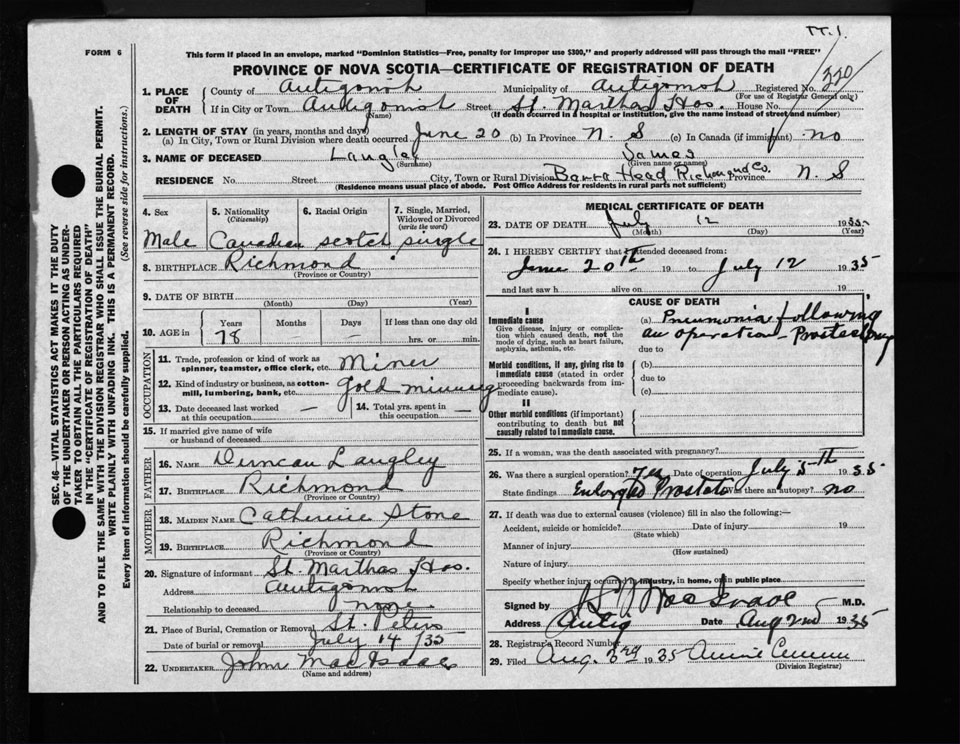 TT. 1.
FORM 6
This form if placed in an envelope, marked "Dominion Statistics—Free, penalty for improper use $300," and properly addressed will pass through the mail "FREE"
PROVINCE OF NOVA SCOTIA—CERTIFICATE OF REGISTRATION OF DEATH
220
SEC. 46—VITAL STATISTICS ACT MAKES IT THE DUTY
OF THE UNDERTAKER OR PERSON ACTING AS UNDER-
TAKER TO OBTAIN ALL THE PARTICULARS REQUIRED
IN THE "CERTIFICATE OF REGISTRATION OF DEATH"
AND TO FILE THE SAME WITH THE DIVISION REGISTRAR WHO SHALL ISSUE THE BURIAL PERMIT.
WRITE PLAINLY WITH UNFADING INK. THIS IS A PERMANENT RECORD.
Every item of information should be carefully supplied. (See reverse side for instructions.)
1. PLACE OF DEATH
County of Antigonish Municipality of Antigonish Registered No.
(For use of Registrar General only)
If in City or Town Antigonish Street St. Marthas Hos. House No.
(Name) (If death occurred in a hospital or institution, give the name instead of street and number)
2. LENGTH OF STAY (in years, months and days)
(a) In City, Town or Rural Division where death occurred June 20 (b) In Province N. S (c) In Canada (if immigrant) no
3. NAME OF DECEASED Langley James
(Surname) (Given name or names)
RESIDENCE No. Street City, Town or Rural Division Barra Head Richmond Co. Province N. S
(Residence means usual place of abode. Post Office Address for residents in rural parts not sufficient)
4. Sex 5. Nationality 6. Racial Origin 7. Single, Married,
(Citizenship) Widowed or Divorced
(write the word)
Male Canadian scotch single
8. BIRTHPLACE Richmond
(Province or Country)
9. DATE OF BIRTH
(Month) (Day) (Year)
10. AGE in Years Months Days If less than one day old
78 — hrs. or min.
OCCUPATION
11. Trade, profession or kind of work as
spinner, teamster, office clerk, etc. Miner
12. Kind of industry or business, as cotton-
mill, lumbering, bank, etc. Gold minning
13. Date deceased last worked
at this occupation —
14. Total yrs. spent in
this occupation —
15. If married give name of wife
or husband of deceased
FATHER
16. NAME Duncan Langley
17. BIRTHPLACE Richmond
(Province or Country)
MOTHER
18. MAIDEN NAME Catherine Stone
19. BIRTHPLACE Richmond
(Province or Country)
20. Signature of informant St. Marthas Hos.
Address Antigonish
Relationship to deceased none
21. Place of Burial, Cremation or Removal St. Peters
Date of burial or removal July 14/35
22. UNDERTAKER John MacIsaac
(Name and address)
MEDICAL CERTIFICATE OF DEATH
23. DATE OF DEATH July 12 1935
(Month) (Day) (Year)
24. I HEREBY CERTIFY that I attended deceased from:
June 20th 19 to July 12 1935
and last saw h alive on 19
CAUSE OF DEATH
I
Immediate cause
Give disease, injury or complica-
tion which caused death, not the
mode of dying, such as heart failure,
asphyxia, asthenia, etc.
(a) Pneumonia following
an operation - Prostatectomy
due to
Morbid conditions, if any, giving rise to
immediate cause (stated in order
proceeding backwards from im-
mediate cause).
(b)
due to
(c)
II
Other morbid conditions (if important)
contributing to death but not
causally related to immediate cause.
25. If a woman, was the death associated with pregnancy?
26. Was there a surgical operation? Yes Date of operation July 5th 1935
State findings Enlarged Prostate Was there an autopsy? no
27. If death was due to external causes (violence) fill in also the following:—
Accident, suicide or homicide? Date of injury 19
(State which)
Manner of injury
(How sustained)
Nature of injury
Specify whether injury occurred in industry, in home, or in public place
Signed by M.D.
Address Antig Date Aug 2nd 1935
28. Registrar's Record Number
29. Filed Aug. 3rd 1935 Annie
(Division Registrar)